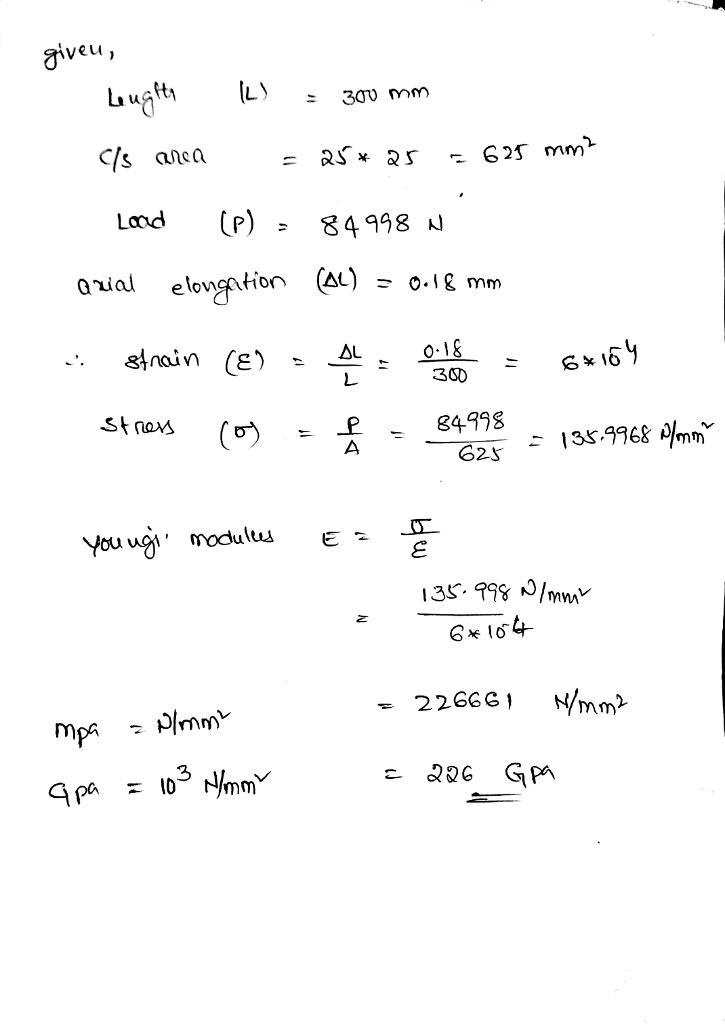 given,
Length (L) = 300 mm
C/s area = 25 * 25 = 625 mm²
Load (P) = 84998 N
axial elongation (ΔL) = 0.18 mm
∴ strain (ε) = ΔL/L = 0.18/300 = 6*10⁻⁴
Stress (σ) = P/A = 84998/625 = 135.9968 N/mm²
Youngs' modulus E = σ/ε
= 135.998 N/mm² / 6*10⁻⁴
= 226661 N/mm²
mpa = N/mm²
Gpa = 10³ N/mm² = 226 Gpa